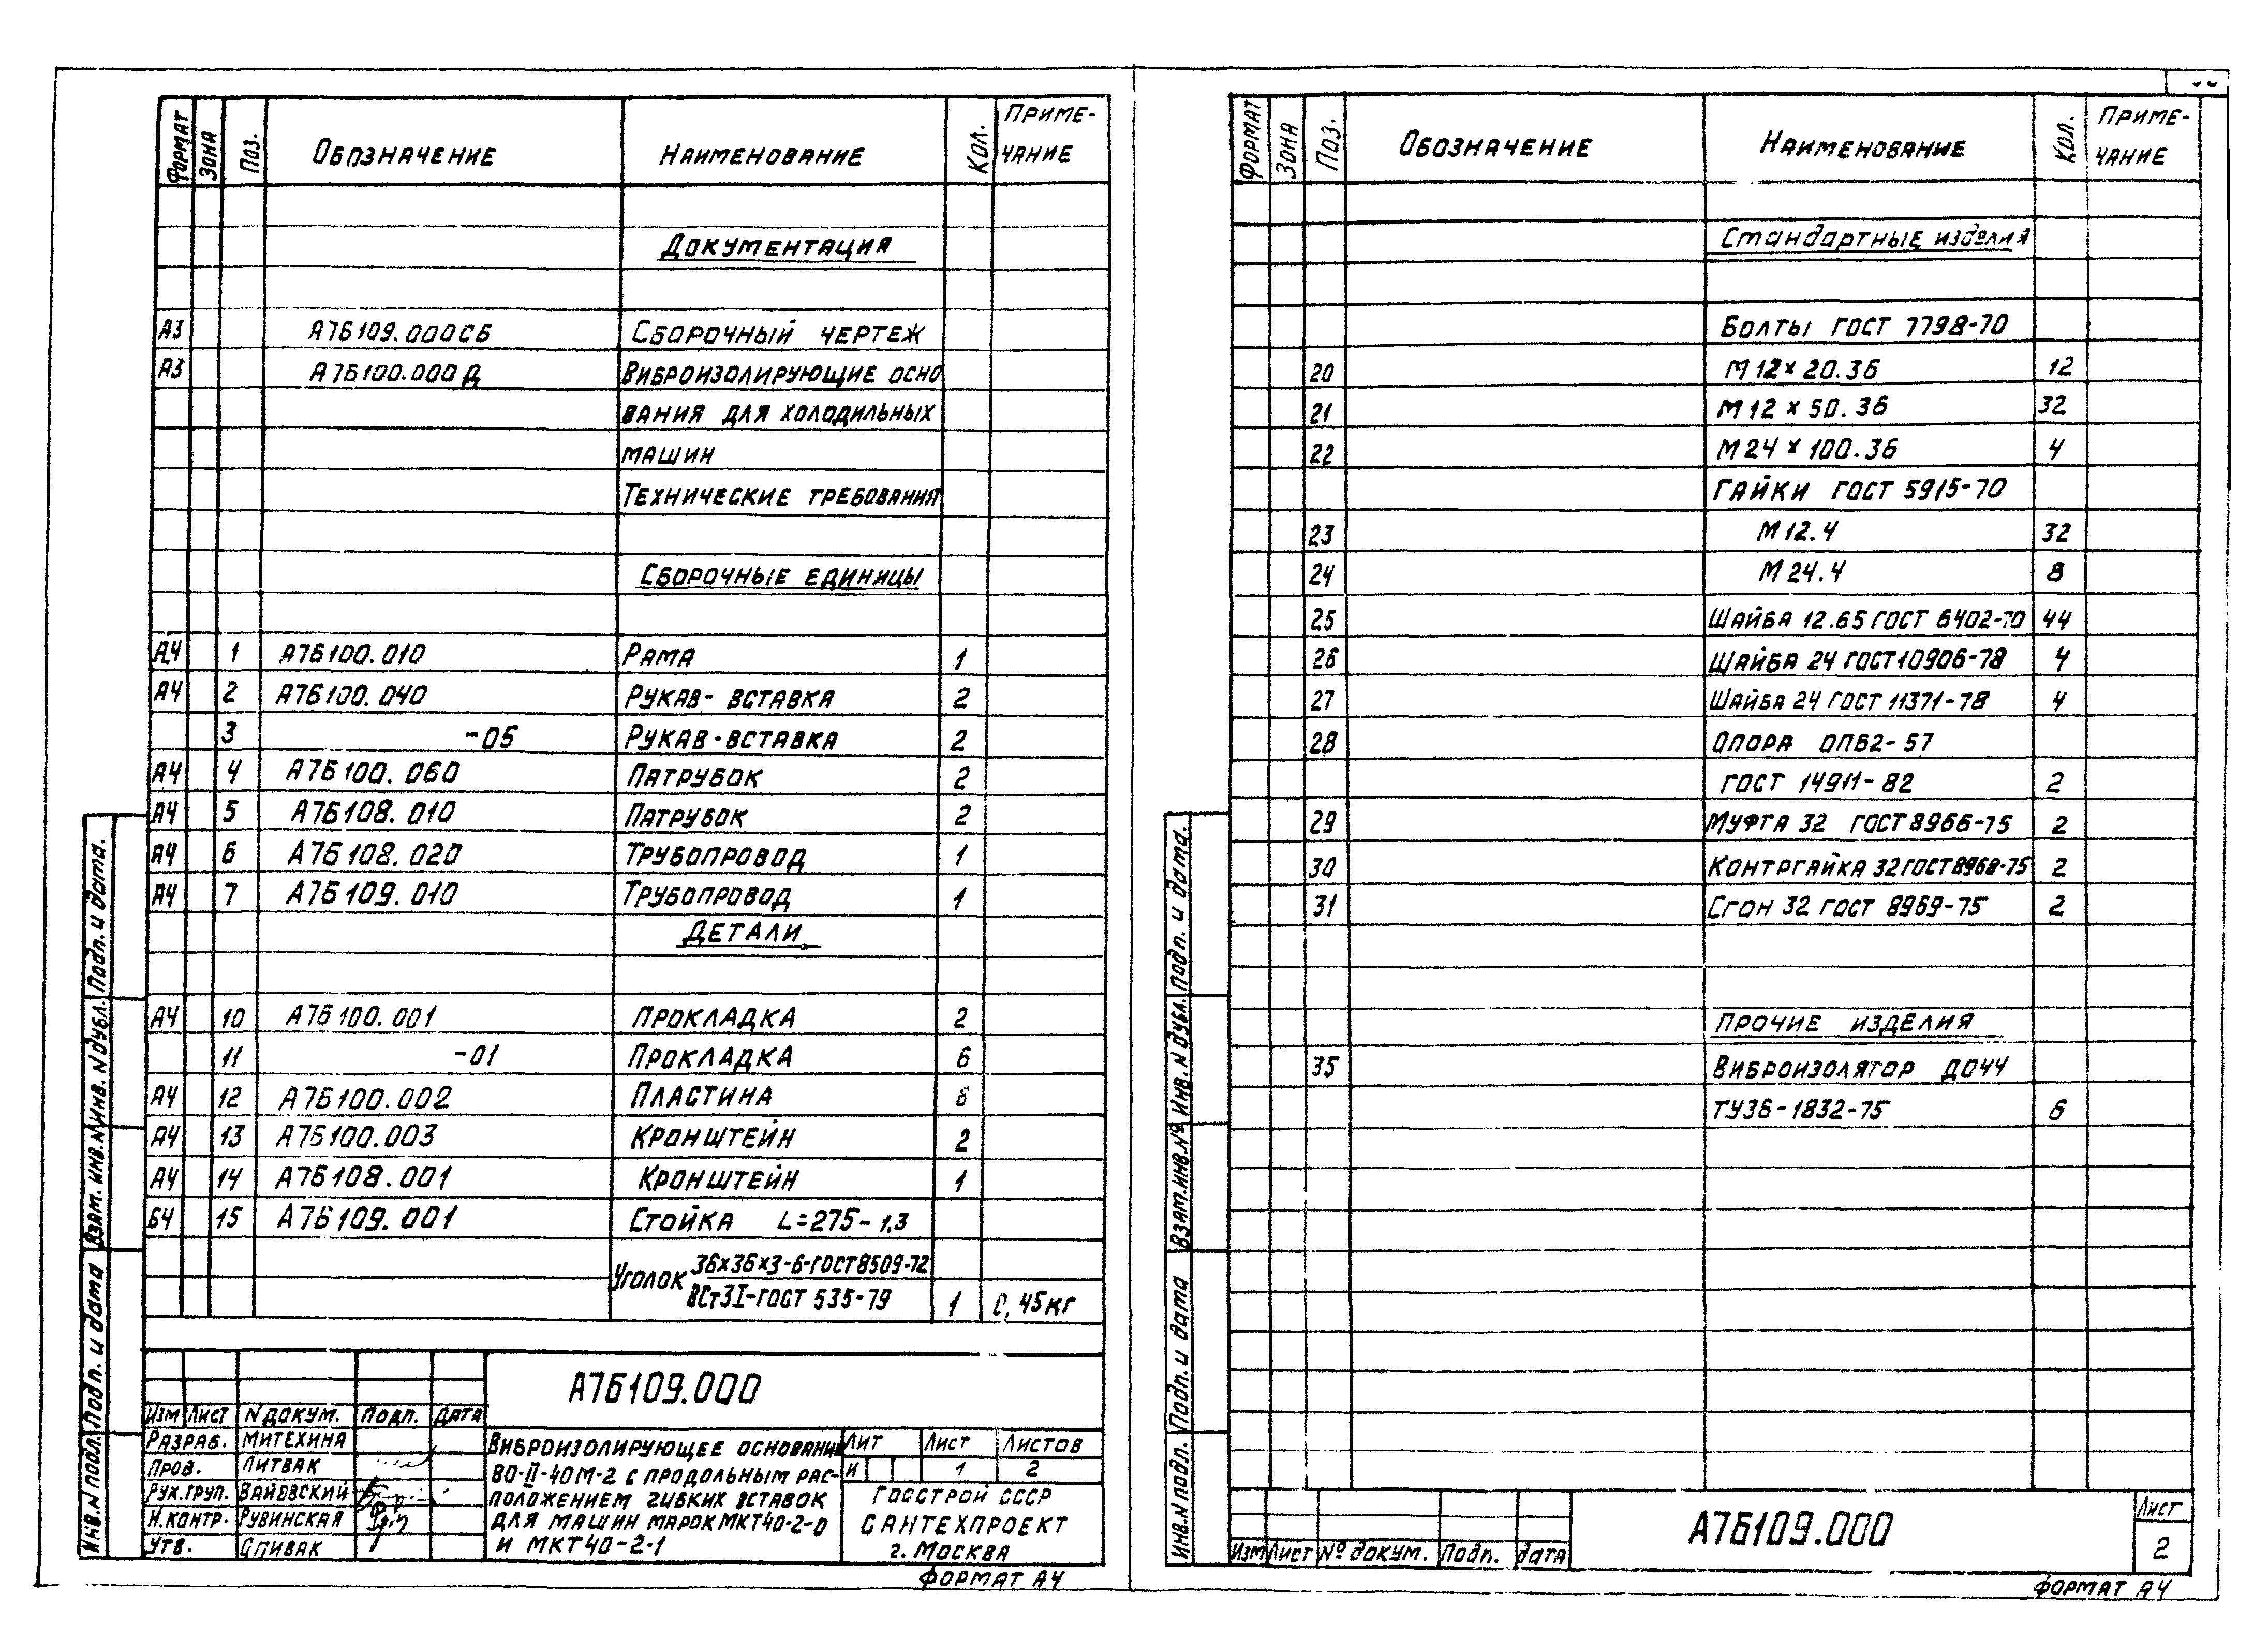 ФОРМАТ ЗОНА ПОЗ. ОБОЗНАЧЕНИЕ НАИМЕНОВАНИЕ КОЛ. ПРИМЕ-
ЧАНИЕ
ДОКУМЕНТАЦИЯ
А3 А7Б109.000СБ СБОРОЧНЫЙ ЧЕРТЕЖ
А3 А7Б100.000Д ВИБРОИЗОЛИРУЮЩИЕ ОСНО
ВАНИЯ ДЛЯ ХОЛОДИЛЬНЫХ
МАШИН
ТЕХНИЧЕСКИЕ ТРЕБОВАНИЯ
СБОРОЧНЫЕ ЕДИНИЦЫ
А4 1 А7Б100.010 РАМА 1
А4 2 А7Б100.040 РУКАВ-ВСТАВКА 2
3 -05 РУКАВ-ВСТАВКА 2
А4 4 А7Б100.060 ПАТРУБОК 2
А4 5 А7Б108.010 ПАТРУБОК 2
А4 6 А7Б108.020 ТРУБОПРОВОД 1
А4 7 А7Б109.010 ТРУБОПРОВОД 1
ДЕТАЛИ
А4 10 А7Б100.001 ПРОКЛАДКА 2
11 -01 ПРОКЛАДКА 6
А4 12 А7Б100.002 ПЛАСТИНА
А4 13 А7Б100.003 КРОНШТЕЙН 2
А4 14 А7Б108.001 КРОНШТЕЙН 1
БЧ 15 А7Б109.001 СТОЙКА L=275-1,3
УГОЛОК 36х36х3-Б-ГОСТ8509-72
ВСт3I-ГОСТ 535-79 1 0,45кг
А7Б109.000
ИЗМ ЛИСТ N ДОКУМ. ПОДП. ДАТА
РАЗРАБ. МИТЕХИНА
ПРОВ. ЛИТВАК
РУК.ГРУП. ВАЙОВСКИЙ
Н.КОНТР. РУВИНСКАЯ
УТВ. СПИВАК
ВИБРОИЗОЛИРУЮЩЕЕ ОСНОВАНИЕ
ВО-II-40М-2 С ПРОДОЛЬНЫМ РАС-
ПОЛОЖЕНИЕМ ГИБКИХ ВСТАВОК
ДЛЯ МАШИН МАРОК МКТ40-2-0
И МКТ40-2-1
ЛИТ ЛИСТ ЛИСТОВ
И 1 2
ГОССТРОЙ СССР
САНТЕХПРОЕКТ
г. МОСКВА
ФОРМАТ А4
Инв.N подл. Подп. и дата Взам. инв.N Инв. N дубл. Подп. и дата.
ФОРМАТ ЗОНА ПОЗ. ОБОЗНАЧЕНИЕ НАИМЕНОВАНИЕ КОЛ. ПРИМЕ-
ЧАНИЕ
Стандартные изделия
БОЛТЫ ГОСТ 7798-70
20 М12х20.36 12
21 М12х50.36 32
22 М24х100.36 4
ГАЙКИ ГОСТ 5915-70
23 М12.4 32
24 М24.4 8
25 ШАЙБА 12.65 ГОСТ 6402-70 44
26 ШАЙБА 24 ГОСТ10906-78 4
27 ШАЙБА 24 ГОСТ 11371-78 4
28 ОПОРА ОПБ2-57
ГОСТ 14911-82 2
29 МУФТА 32 ГОСТ8966-75 2
30 КОНТРГАЙКА 32 ГОСТ8968-75 2
31 СГОН 32 ГОСТ 8969-75 2
ПРОЧИЕ ИЗДЕЛИЯ
35 ВИБРОИЗОЛЯТОР ДО44
ТУ36-1832-75 6
А7Б109.000
ЛИСТ
2
ИЗМ ЛИСТ № ДОКУМ. Подп. дата
ФОРМАТ А4
Инв.N подл. Подп. и дата Взам.инв.№ Инв. N дубл. Подп. и дата.